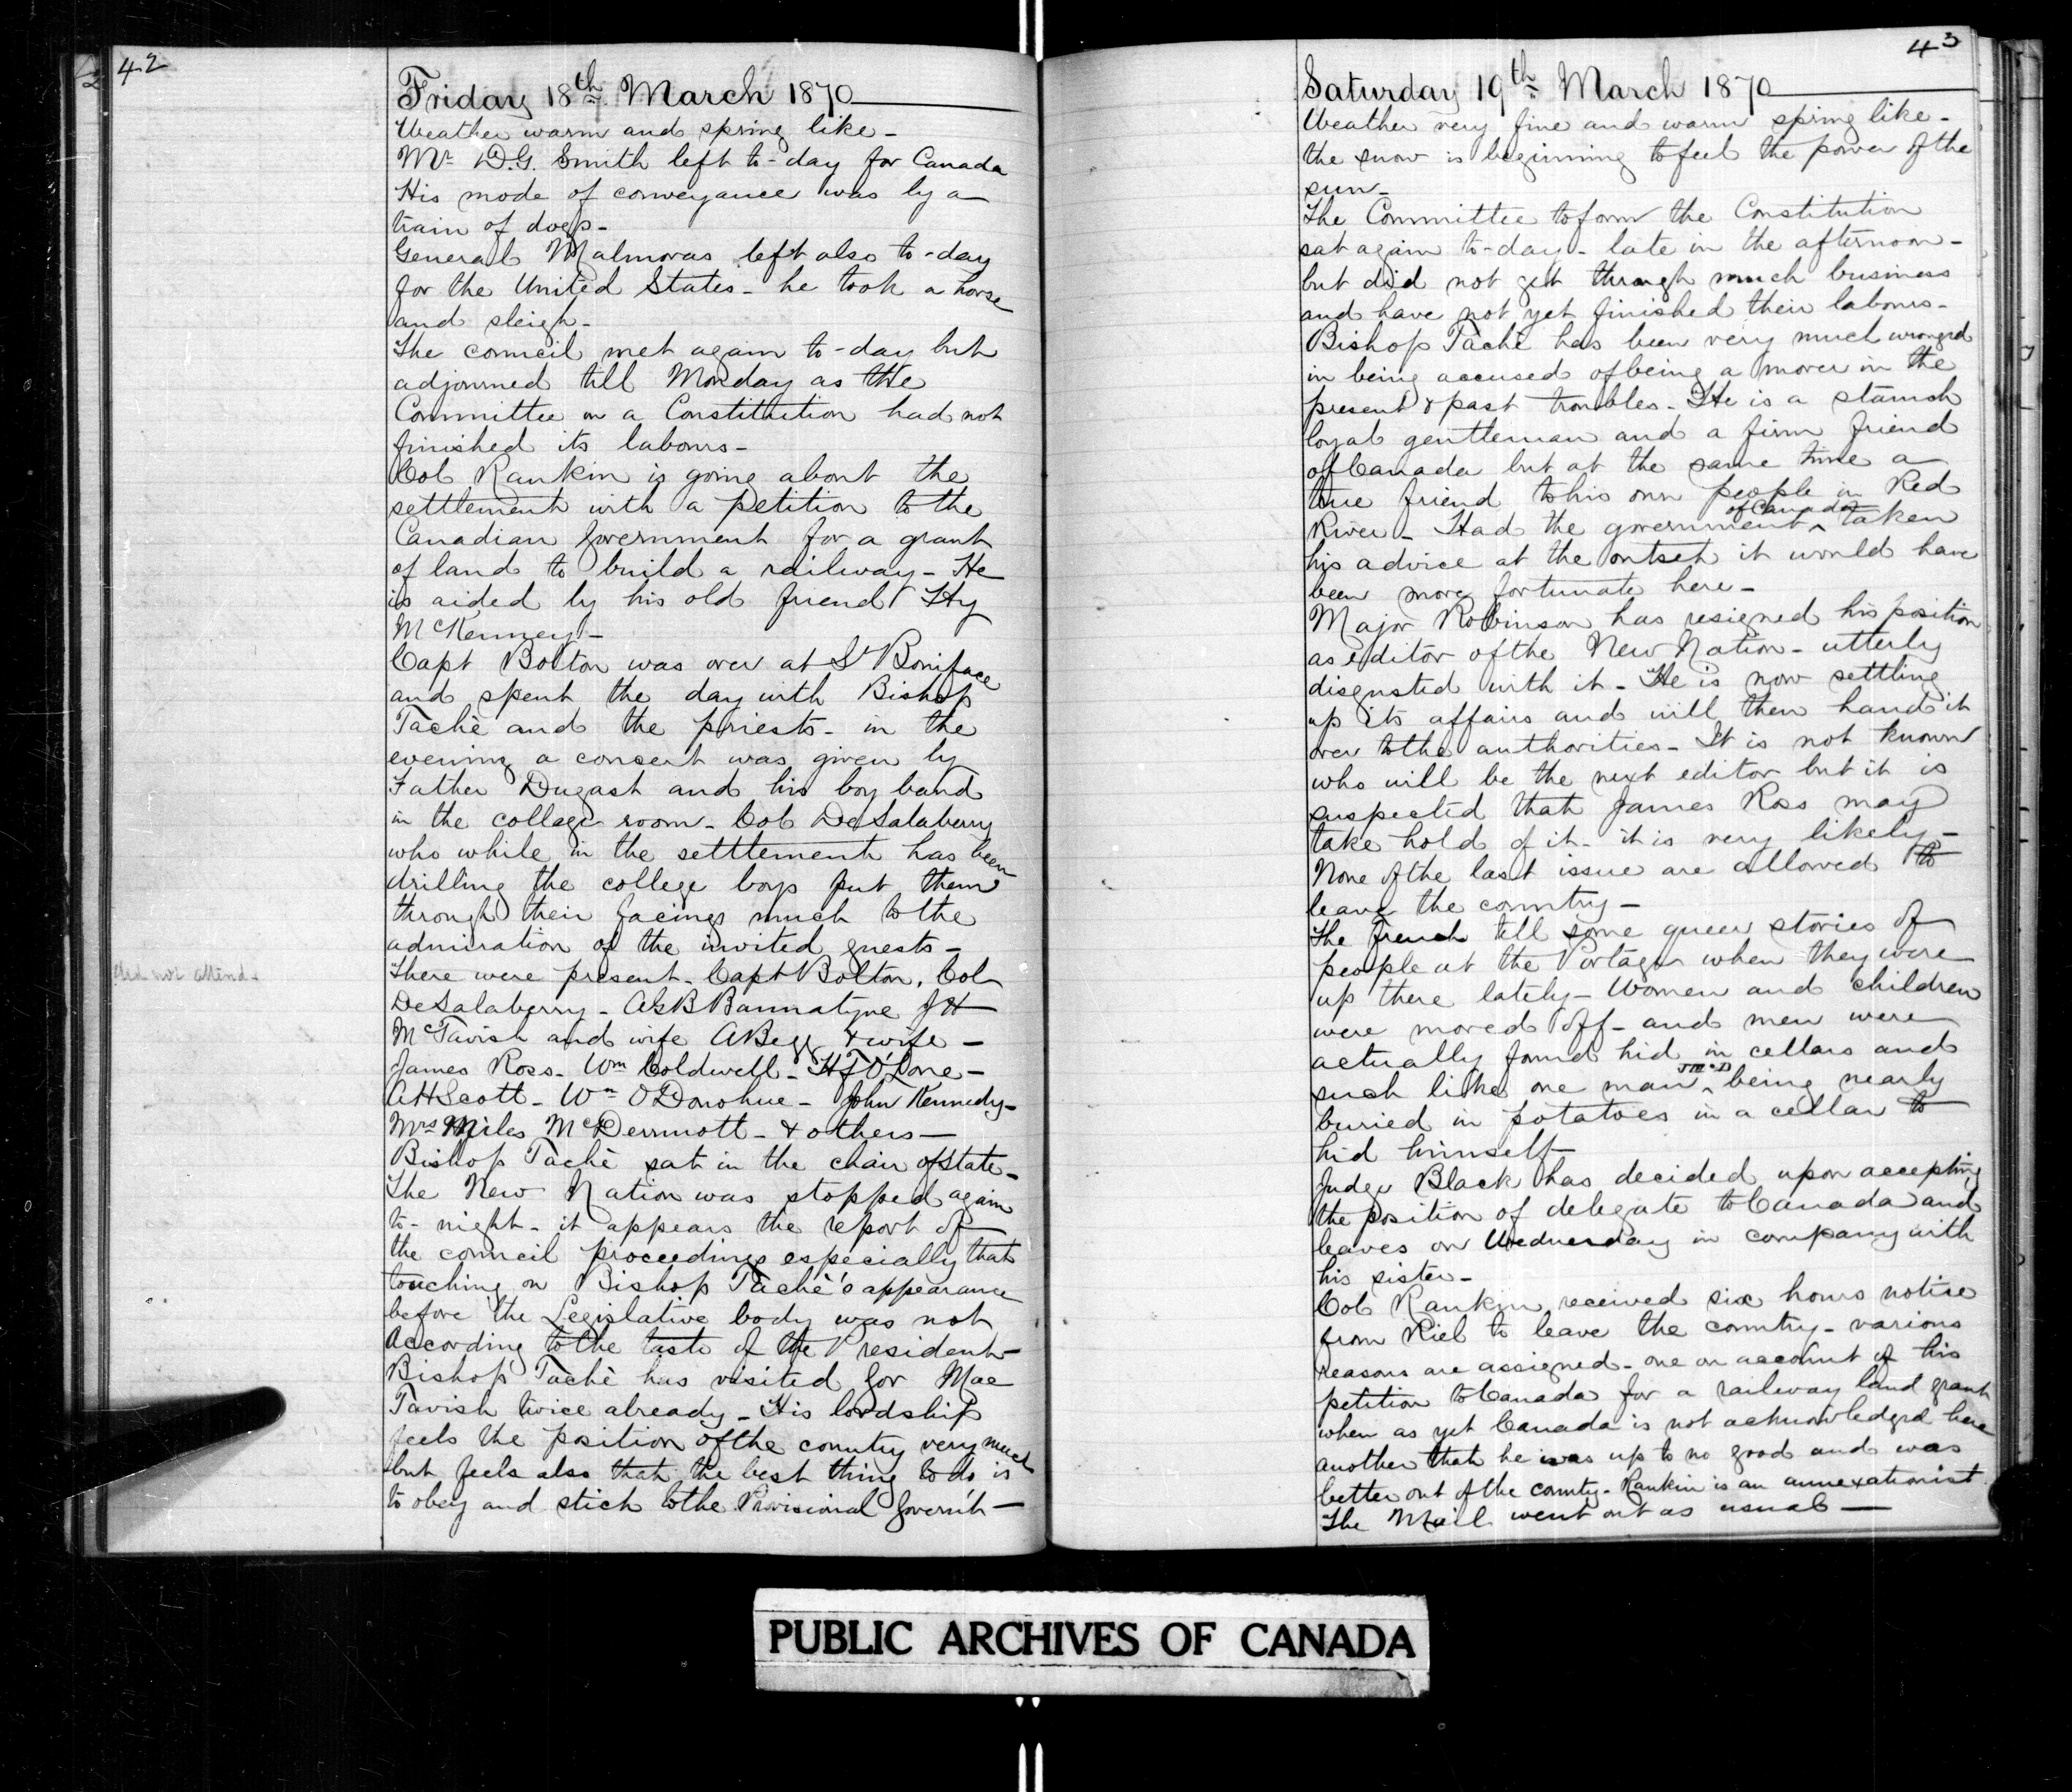 42
Friday 18th March 1870
Weather warm and spring like -
Mr D.G. Smith left to-day for Canada
His mode of conveyance was by a
train of dogs -
General Malmoras left also to-day
for the United States - he took a horse
and sleigh -
The council met again to-day but
adjourned till Monday as the
Committee on a Constitution had not
finished its labours -
Col Rankin is going about the
settlement with a petition to the
Canadian Government for a grant
of land to build a railway - He
is aided by his old friend Hy
McKenney -
Capt Bolton was over at St Boniface
and spent the day with Bishop
Tachè and the priests - in the
evening a concert was given by
Father Dugast and his boy band
in the college room - Col De Salaberry
who while in the settlement has been
drilling the college boys put them
through their facings much to the
admiration of the invited guests -
There were present - Capt Bolton, Col
did not attend -
DeSalaberry - AGB Bannatyne JH
McTavish and wife ABegg & wife -
James Ross - Wm Coldwell - HF O'Lone -
AHScott - Wm O'Donohue - John Kennedy -
Mrs Miles McDermott - & others -
Bishop Tachè sat in the chair of state -
The New Nation was stopped again
to-night - it appears the report of
the council proceedings especially that
touching on Bishop Tachè's appearance
before the Legislative body was not
According to the taste of the President -
Bishop Tachè has visited Gov Mac
Tavish twice already - His lordship
feels the position of the country very much
but feels also that the best thing to do is
to obey and stick to the Provisional Govern't -
43
Saturday 19th March 1870
Weather very fine and warm spring like -
the snow is beginning to feel the power of the
sun -
The Committee to form the Constitution
sat again to-day - late in the afternoon -
but did not get through much business
and have not yet finished their labours -
Bishop Tachè has been very much wronged
in being accused of being a mover in the
present & past troubles - He is a staunch
loyal gentleman and a firm friend
of Canada but at the same time a
true friend to his own people in Red
River - Had the government ^ of Canada taken
his advice at the outset it would have
been more fortunate here -
Major Robinson has resigned his position
as editor of the New Nation - utterly
disgusted with it - He is now settling
up its affairs and will then hand it
over to the authorities - It is not known
who will be the next editor but it is
suspected that James Ross may
take hold of it - it is very likely -
None of the last issue are allowed to
leave the country -
The French tell some queer stories of
people at the Portage when they were
up there lately - Women and children
were moved off - and men were
actually found hid in cellars and
such like one man ^ J McD being nearly
buried in potatoes in a cellar to
hid himself -
Judge Black has decided upon accepting
the position of delegate to Canada and
leaves on Wednesday in company with
his sister -
Col Rankin received six hours notise
from Riel to leave the country - various
reasons are assigned - one on account of his
petition to Canada for a railway land grant
when as yet Canada is not acknowledged here
another that he was up to no good and was
better out of the county - Rankin is an annexationist
The Mail went out as usual -
PUBLIC ARCHIVES OF CANADA